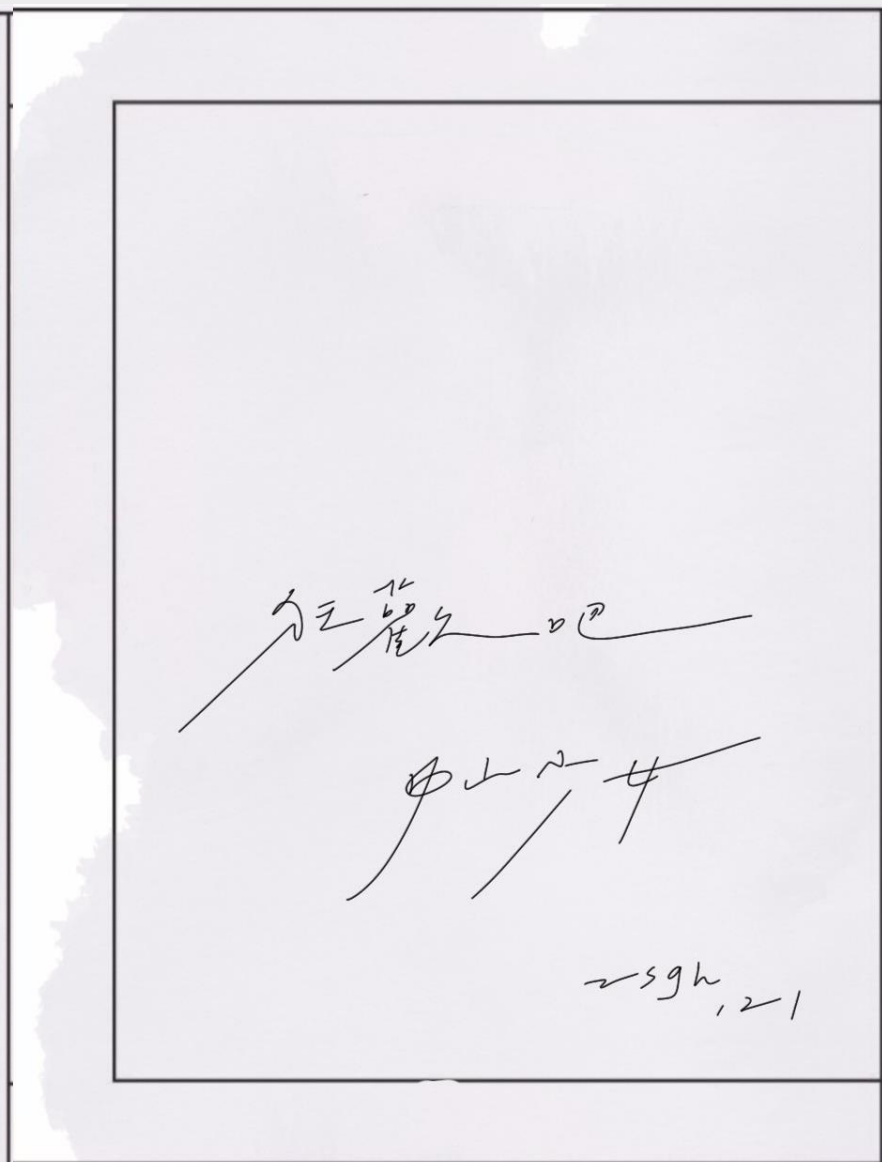 狂歡吧
中山少女
zsgh, 21